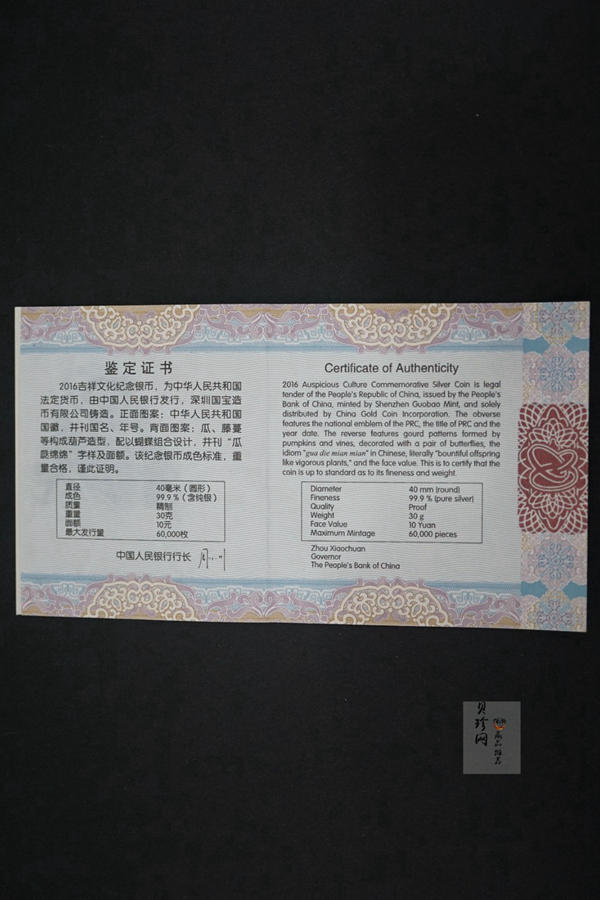 鉴定证书
2016吉祥文化纪念银币，为中华人民共和国
法定货币，由中国人民银行发行，深圳国宝造
币有限公司铸造。正面图案：中华人民共和国
国徽，并刊国名、年号。背面图案：瓜、藤蔓
等构成葫芦造型，配以蝴蝶组合设计，并刊“瓜
瓞绵绵”字样及面额。该纪念银币成色标准，重
量合格，谨此证明。
直径 40毫米（圆形）
成色 99.9％（含纯银）
质量 精制
重量 30克
面额 10元
最大发行量 60,000枚
中国人民银行行长
Certificate of Authenticity
2016 Auspicious Culture Commemorative Silver Coin is legal
tender of the People's Republic of China, issued by the People's
Bank of China, minted by Shenzhen Guobao Mint, and solely
distributed by China Gold Coin Incorporation. The obverse
features the national emblem of the PRC, the title of PRC and the
year date. The reverse features gourd patterns formed by
pumpkins and vines, decorated with a pair of butterflies, the
idiom "gua die mian mian" in Chinese, literally "bountiful offspring
like vigorous plants," and the face value. This is to certify that the
coin is up to standard as to its fineness and weight.
Diameter 40 mm (round)
Fineness 99.9 % (pure silver)
Quality Proof
Weight 30 g
Face Value 10 Yuan
Maximum Mintage 60,000 pieces
Zhou Xiaochuan
Governor
The People's Bank of China
贝珍网
藏品推荐